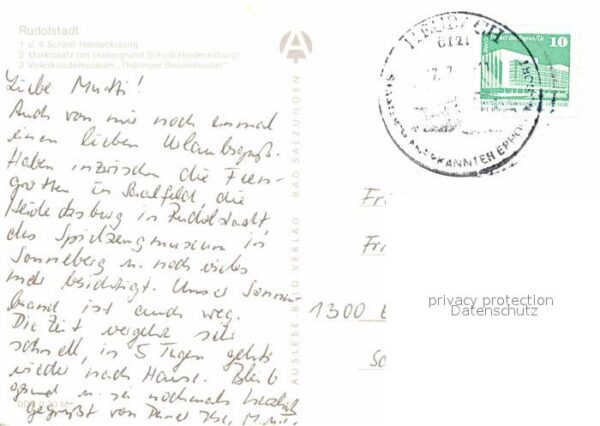 Rudolstadt
1 u. 4 Schloß Heidecksburg
2 Marktplatz (im Hintergrund Schloß Heidecksburg)
3 Volkskundemuseum „Thüringer Bauernhäuser"
Liebe Mutti!
Auch von mir noch einmal
einen lieben Urlaubsgruß.
Haben inzwischen die Feen-
grotten in Saalfeld, die
Heidecksburg in Rudolstadt,
das Spielzeugmuseum in
Sonneberg u. noch vieles
mehr besichtigt. Unser Sonnen-
brand ist auch weg.
Die Zeit vergeht sehr
schnell, in 5 Tagen gehts
wieder nach Hause. Bleib
gesund u. sei nochmals herzlich
gegrüßt von
AUSLESE-BILD-VERLAG · BAD SALZUNGEN
A
NEUBACH
6121
STAATLICH ANERKANNTER ERHO
10
Fri
Fri
1300
privacy protection
Datenschutz